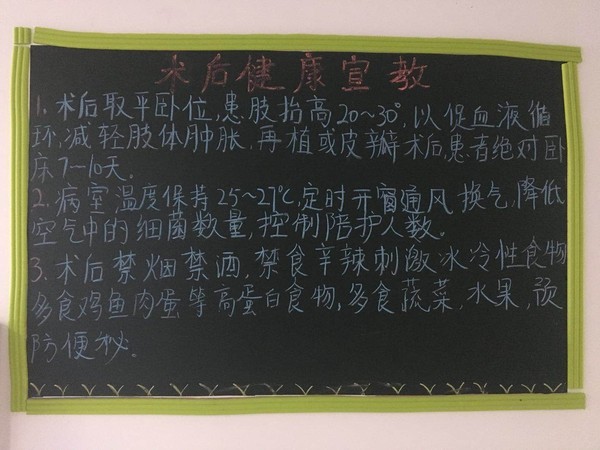 术后健康宣教
1. 术后取平卧位,患肢抬高20~30°,以促血液循
环,减轻肢体肿胀,再植或皮瓣术后,患者绝对卧
床7~10天。
2. 病室温度保持25~27℃,定时开窗通风换气,降低
空气中的细菌数量,控制陪护人数。
3. 术后禁烟禁酒,禁食辛辣刺激冰冷性食物
多食鸡鱼肉蛋等高蛋白食物,多食蔬菜,水果,预
防便秘。